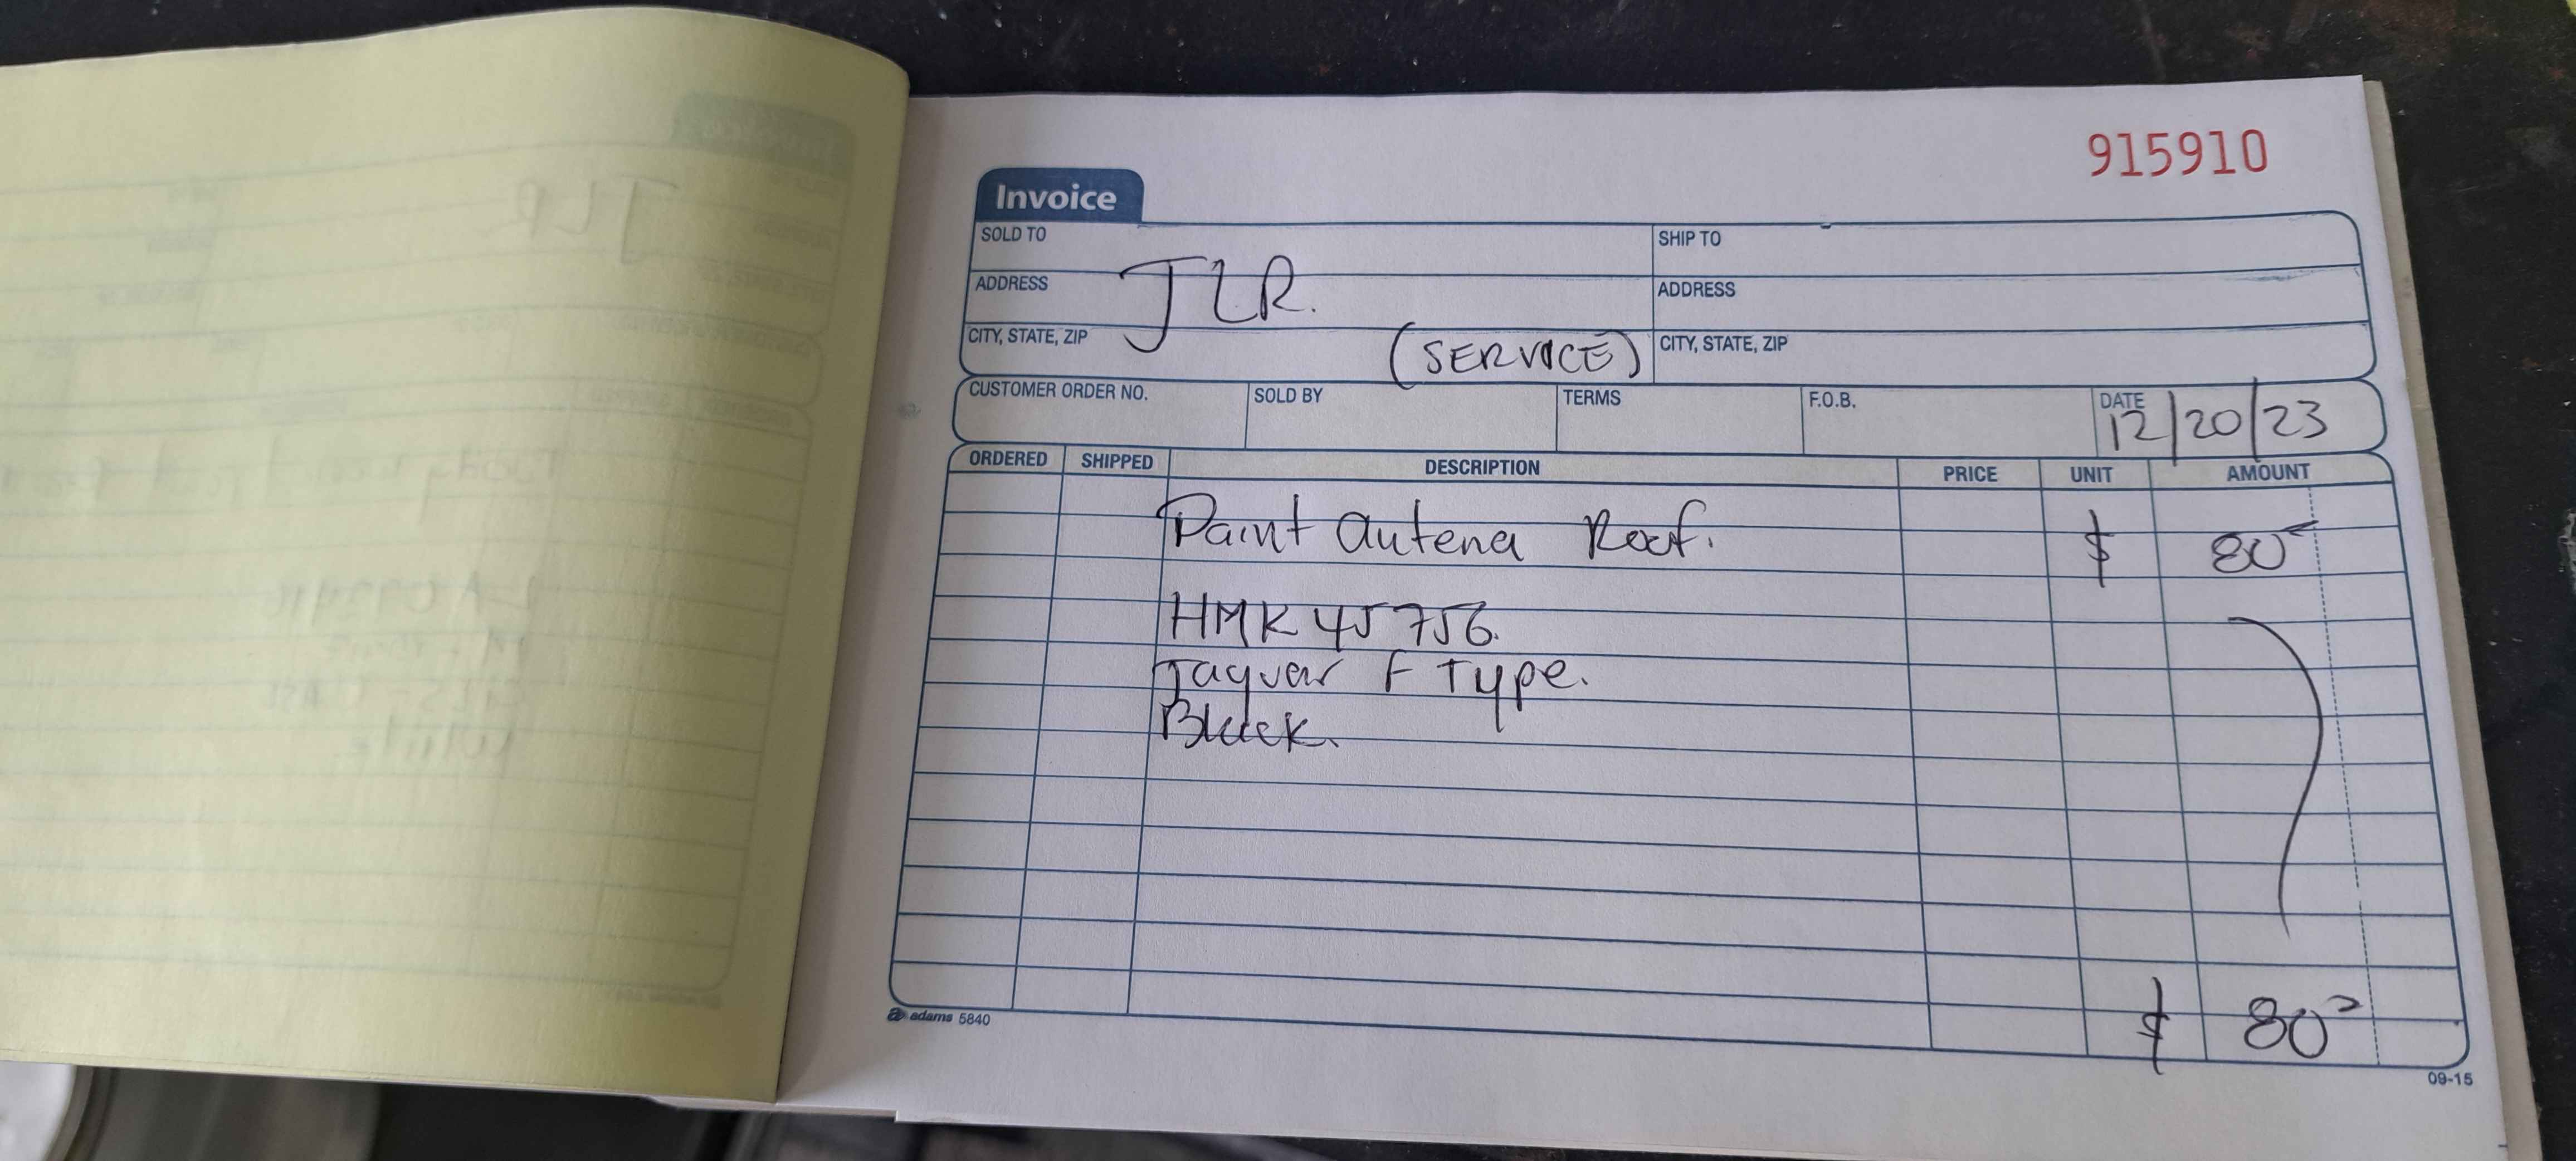 915910
Invoice
SOLD TO
SHIP TO
ADDRESS
JLR.
ADDRESS
CITY, STATE, ZIP
(SERVICE)
CITY, STATE, ZIP
CUSTOMER ORDER NO. SOLD BY TERMS F.O.B. DATE
12/20/23
ORDERED SHIPPED DESCRIPTION PRICE UNIT AMOUNT
Paint antena Roof. $ 80
HMK45756.
Jaguar F Type.
Black.
$ 80
adams 5840
09-15